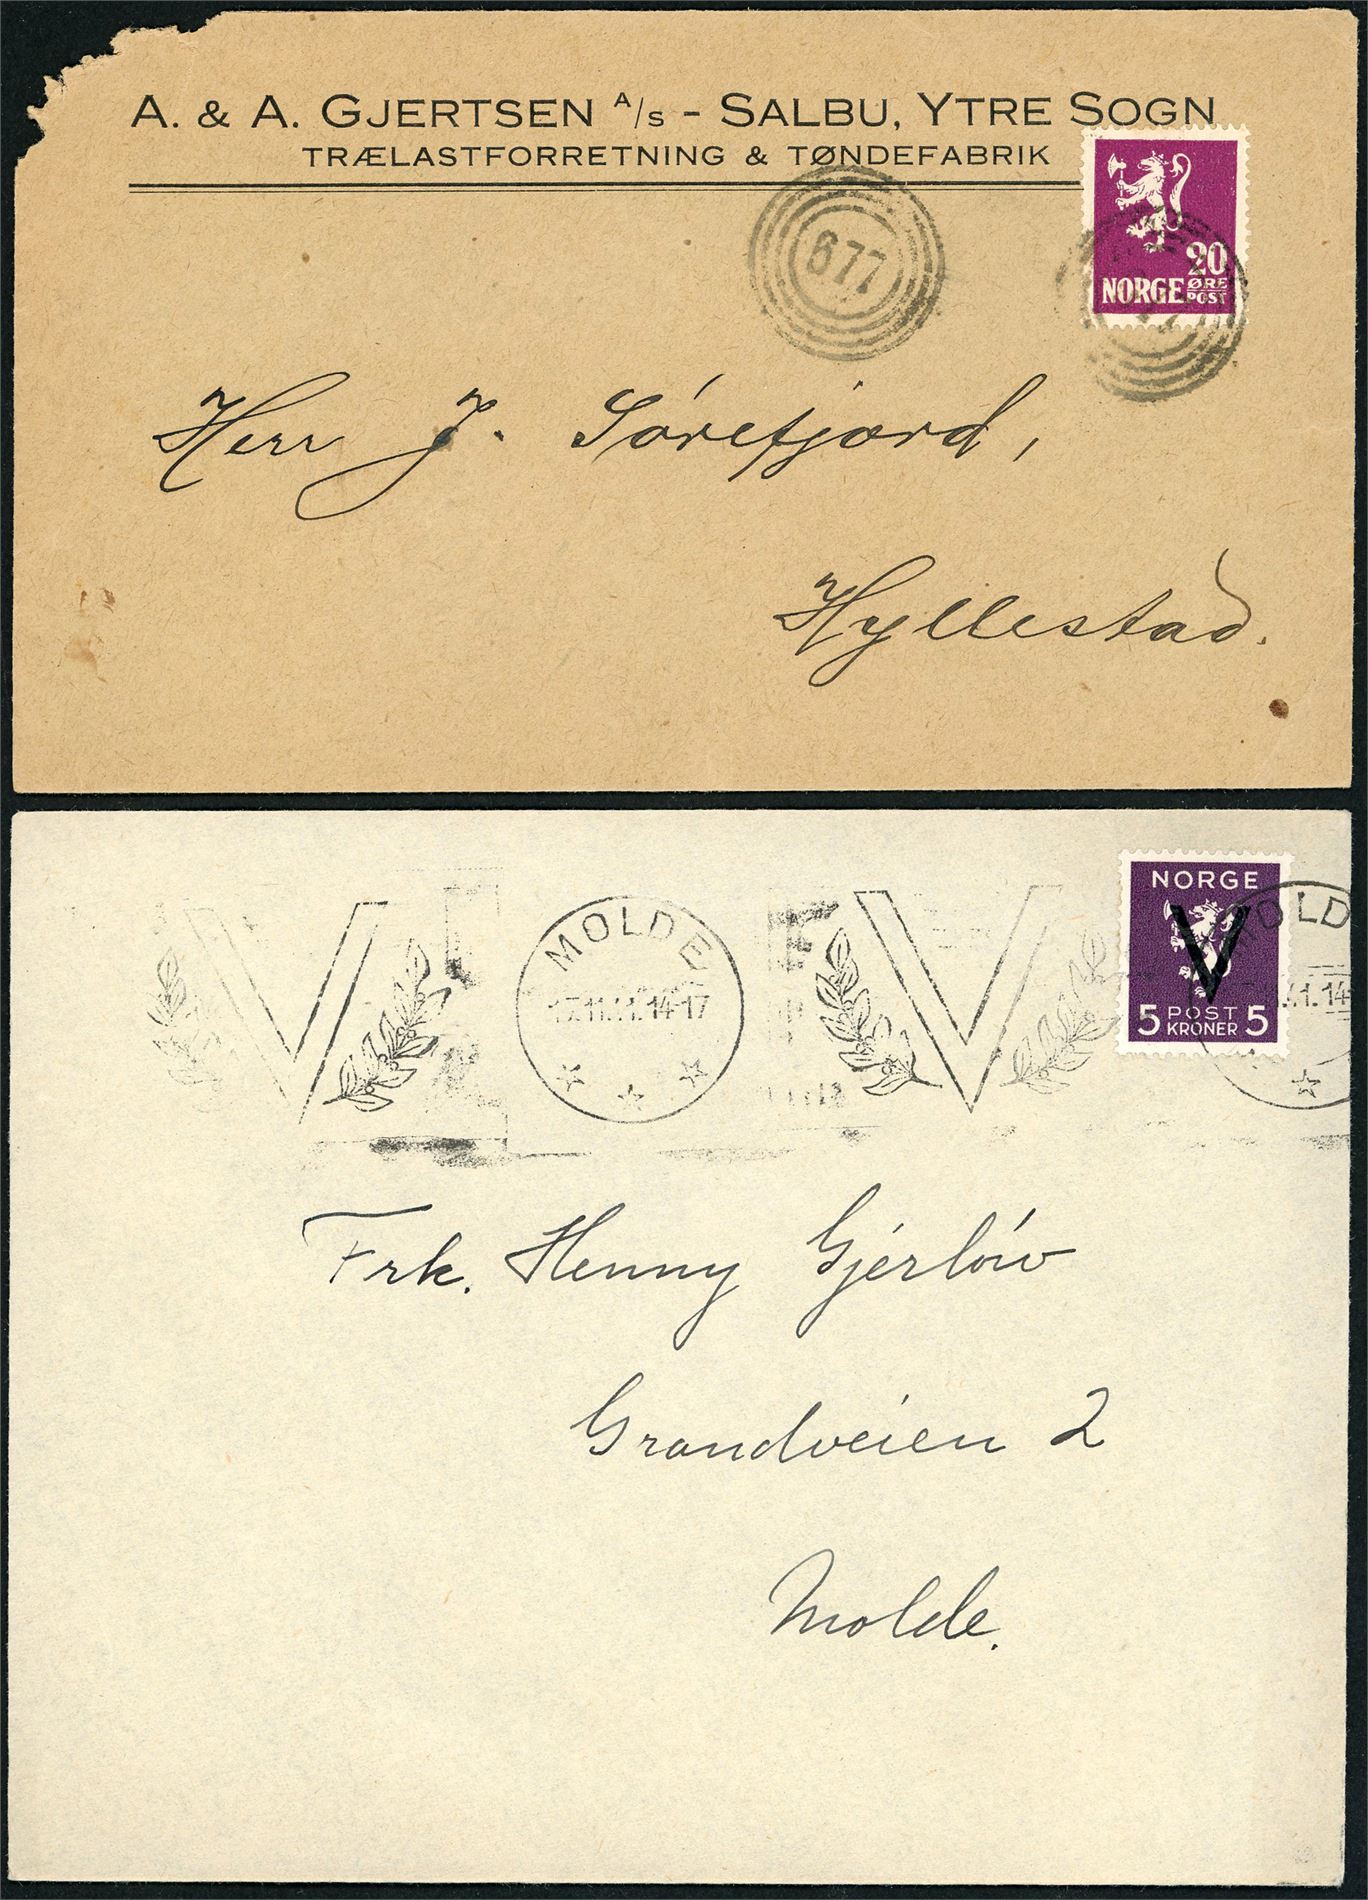 A. & A. GJERTSEN A/S - SALBU, YTRE SOGN
TRÆLASTFORRETNING & TØNDEFABRIK
20
NORGE ØRE
POST
677
Herr J. Sørefjord,
Hyllestad.
NORGE
V
5 POST 5
KRONER
V MOLDE V MOLD
17.11.41.14-17
41.14
Frk. Henny Gjerløw
Grandveien 2
Molde.